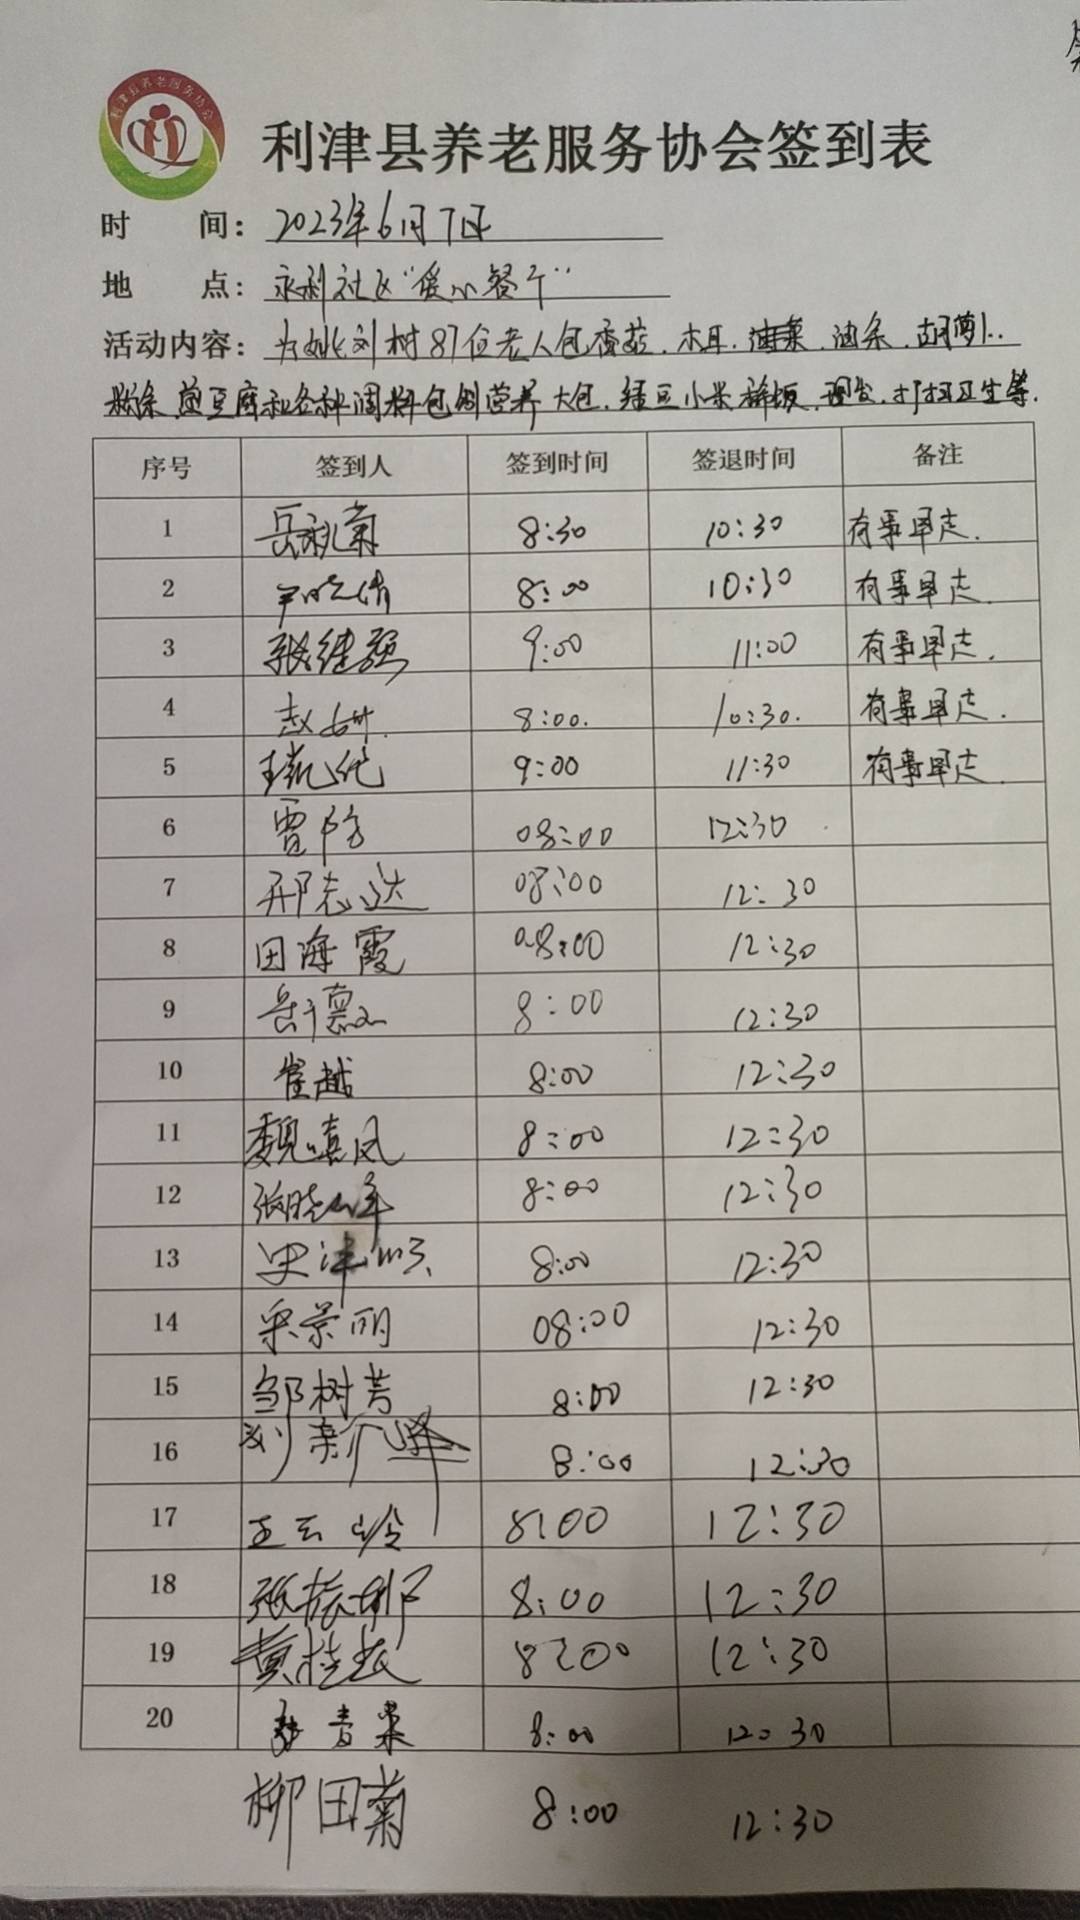 利津县养老服务协会
利津县养老服务协会签到表
时 间：2023年6月7日
地 点：永利社区“爱心餐厅”
活动内容：为姚刘树87位老人包香菇．木耳．油菜．油条．胡萝卜．
粉条 豆腐和各种调料包的营养大包．绿豆小米稀饭．理发．打扫卫生等．
序号 签到人 签到时间 签退时间 备注
1 岳秋菊 8:30 10:30 有事早走.
2 尹晓倩 8:00 10:30 有事早走.
3 张继强 9:00 11:00 有事早走.
4 赵妍. 8:00. 10:30. 有事早走.
5 9:00 11:30 有事早走.
6 08:00 12:30
7 邢志达 08:00 12:30
8 田海霞 08:00 12:30
9 8:00 12:30
10 崔越 8:00 12:30
11 魏喜凤 8:00 12:30
12 张晓军 8:00 12:30
13 史津 8:00 12:30
14 宋景明 08:00 12:30
15 邹树芳 8:00 12:30
16 刘新峰 8:00 12:30
17 王云岭 8:00 12:30
18 张振 8:00 12:30
19 黄桂 8:00 12:30
20 8:00 12:30
柳田菊 8:00 12:30